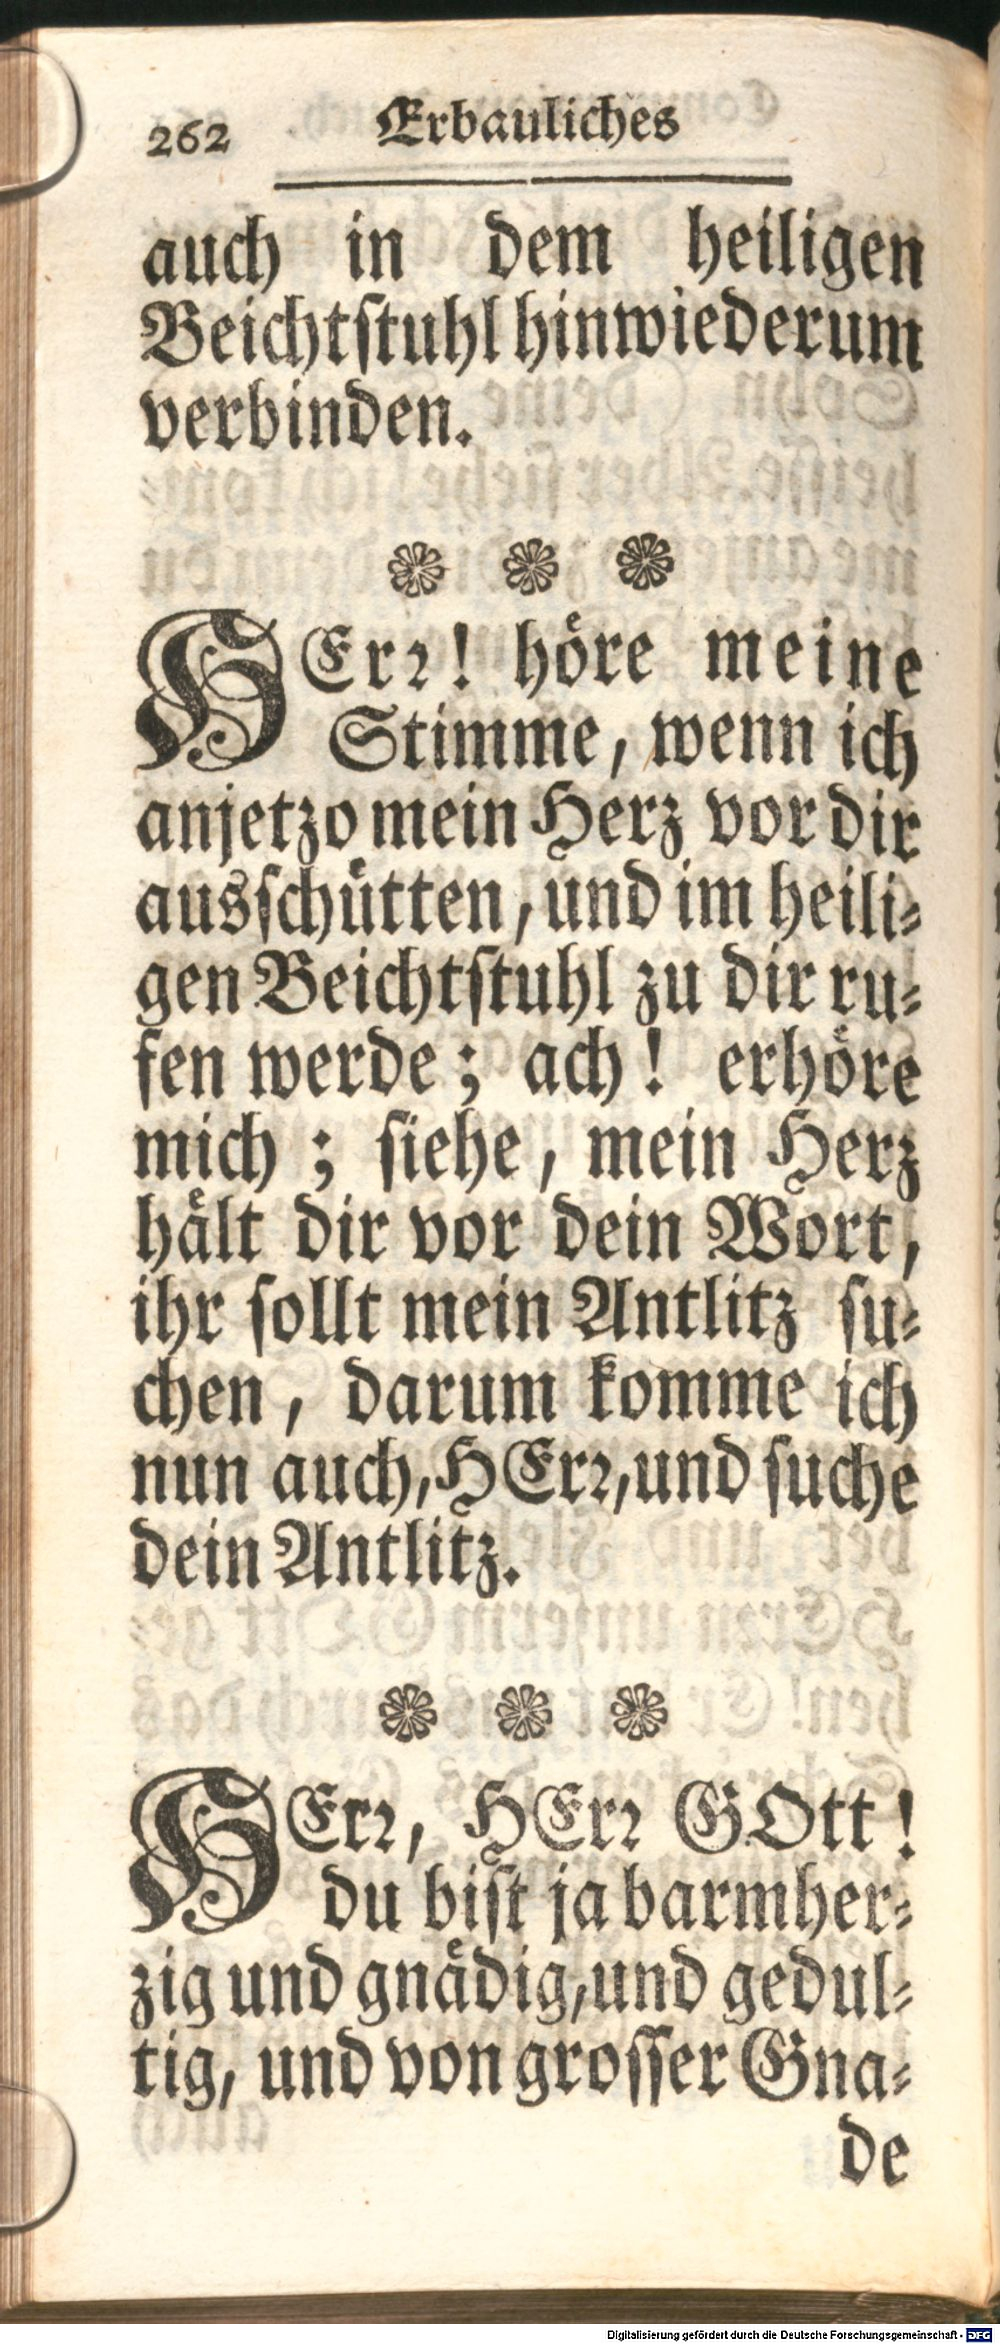 262 Erbauliches
auch in dem heiligen
Beichtſtuhl hinwiederum
verbinden.
HErꝛ! höre meine
Stimme, wenn ich
anjetzo mein Herz vor dir
ausſchütten, und im heili⸗
gen Beichtſtuhl zu dir ru⸗
fen werde; ach! erhöre
mich; ſiehe, mein Herz
hält dir vor dein Wort,
ihr ſollt mein Antlitz ſu⸗
chen, darum komme ich
nun auch, HErꝛ, und ſuche
dein Antlitz.
HErꝛ, HErꝛ GOtt!
du biſt ja barmher⸗
zig und gnädig, und gedul⸗
tig, und von groſſer Gna⸗
de
Digitalisierung gefördert durch die Deutsche Forschungsgemeinschaft - DFG